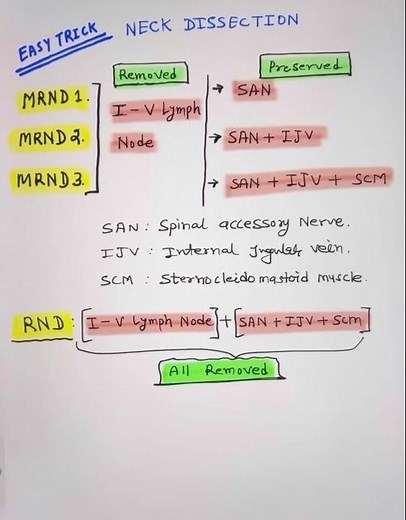 EASY TRICK NECK DISSECTION
Removed Preserved
MRND 1. I - V Lymph → SAN
MRND 2. Node → SAN + IJV
MRND 3. → SAN + IJV + SCM
SAN : Spinal accessory Nerve.
IJV : Internal Jugular vein.
SCM : Sternocleidomastoid muscle.
RND : [I - V Lymph Node] + [SAN + IJV + Scm]
All Removed